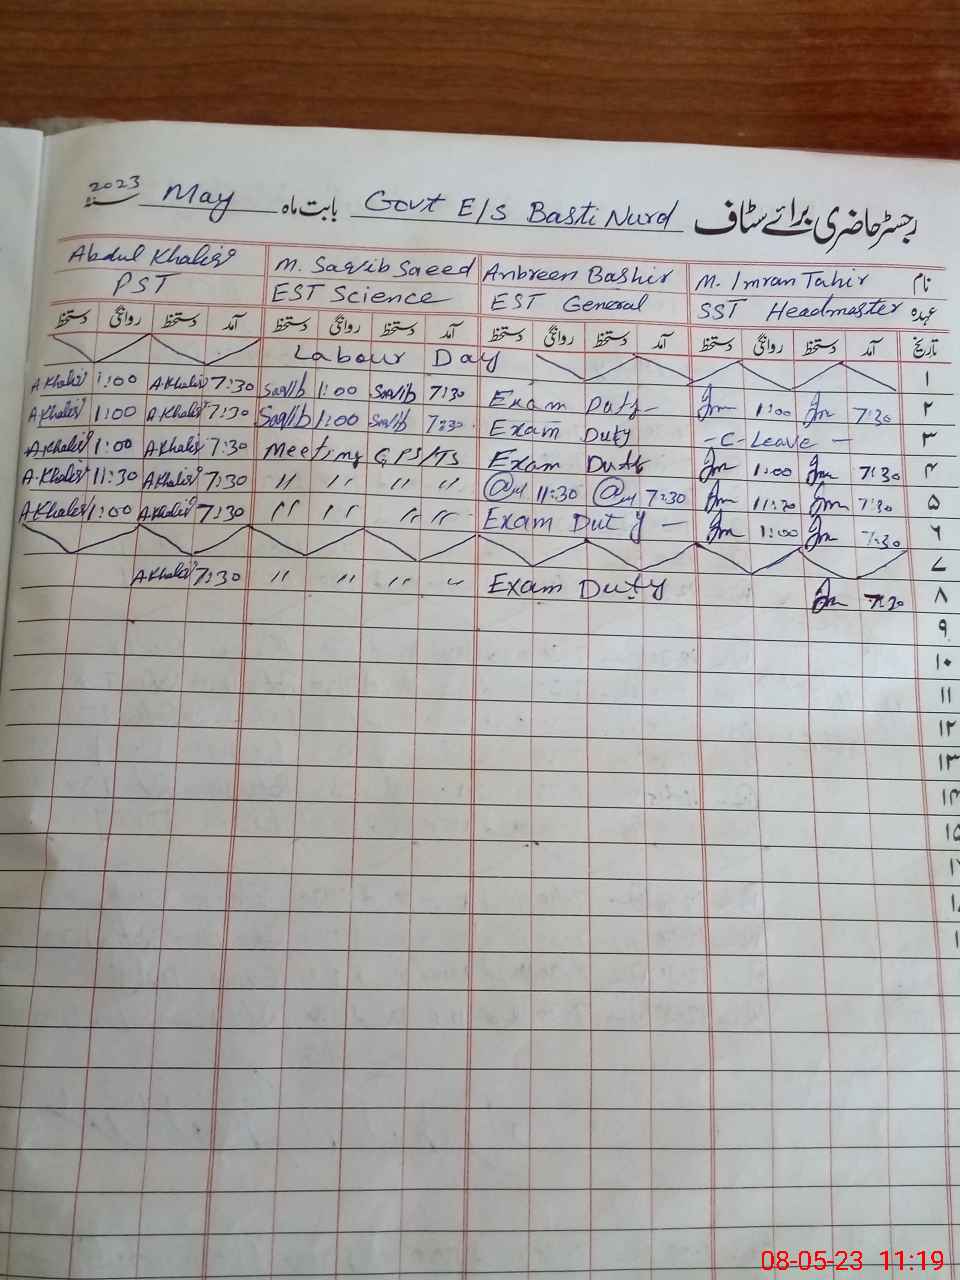 رجسٹر حاضری برائے سٹاف Govt E/S Basti Nurd بابت ماہ May سنہ 2023
نام M. Imran Tahir Anbreen Bashir M. Saqib Saeed Abdul Khaliq
عہدہ SST Headmaster EST General EST Science PST
تاریخ آمد دستخط روانگی دستخط آمد دستخط روانگی دستخط آمد دستخط روانگی دستخط آمد دستخط روانگی دستخط
۱ Labour Day
۲ 7:30 1:00 Exam Duty - 7:30 Saqib 1:00 Saqib 7:30 A.Khaliq 1:00 A.Khaliq
۳ - C - Leave - Exam Duty 7:30 Saqib 1:00 Saqib 7:30 A.Khaliq 1:00 A.Khaliq
۴ 7:30 1:00 Exam Duty Meeting GPS/TS 7:30 A.Khaliq 1:00 A.Khaliq
۵ 7:30 11:30 7:30 11:30 〃 〃 〃 〃 7:30 A.Khaliq 11:30 A.Khaliq
۶ 7:30 1:00 Exam Duty - 〃 〃 〃 〃 7:30 A.Khaliq 1:00 A.Khaliq
۷
۸ 7:30 Exam Duty 〃 〃 〃 〃 7:30 A.Khaliq
۹
۱۰
۱۱
۱۲
۱۳
۱۴
۱۵
08-05-23 11:19